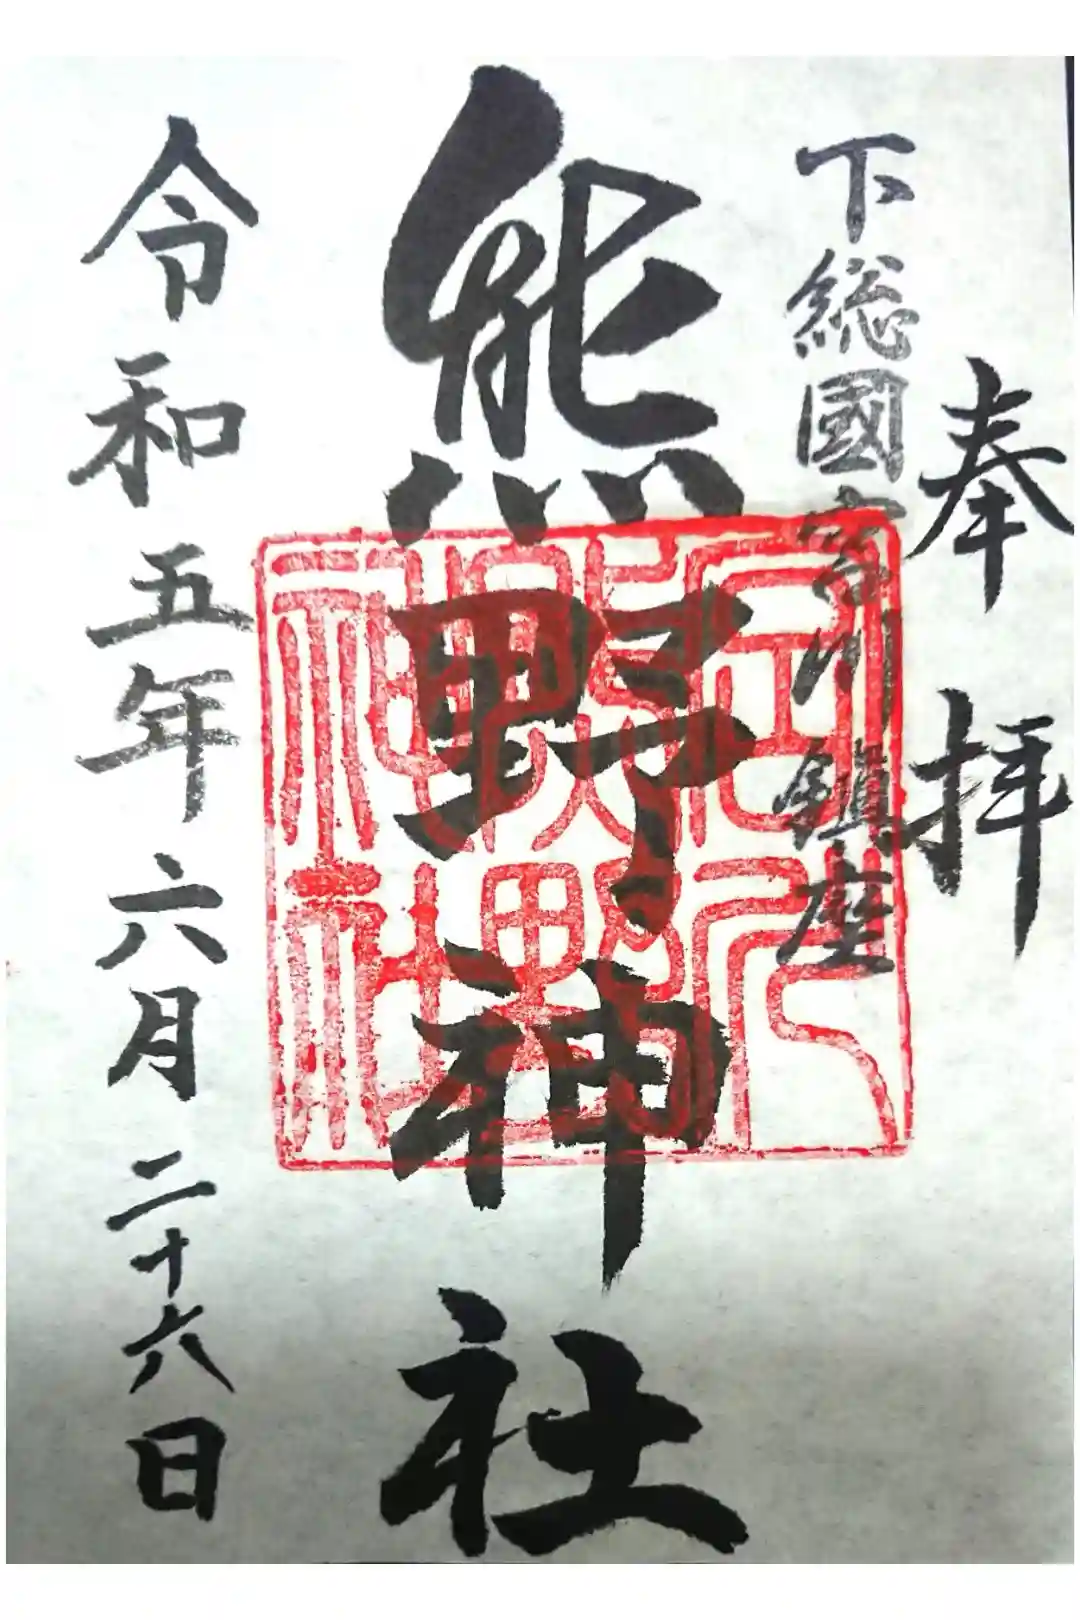 奉拝
下総國宮川鎮座
熊野神社
令和五年六月二十六日
熊野
神社